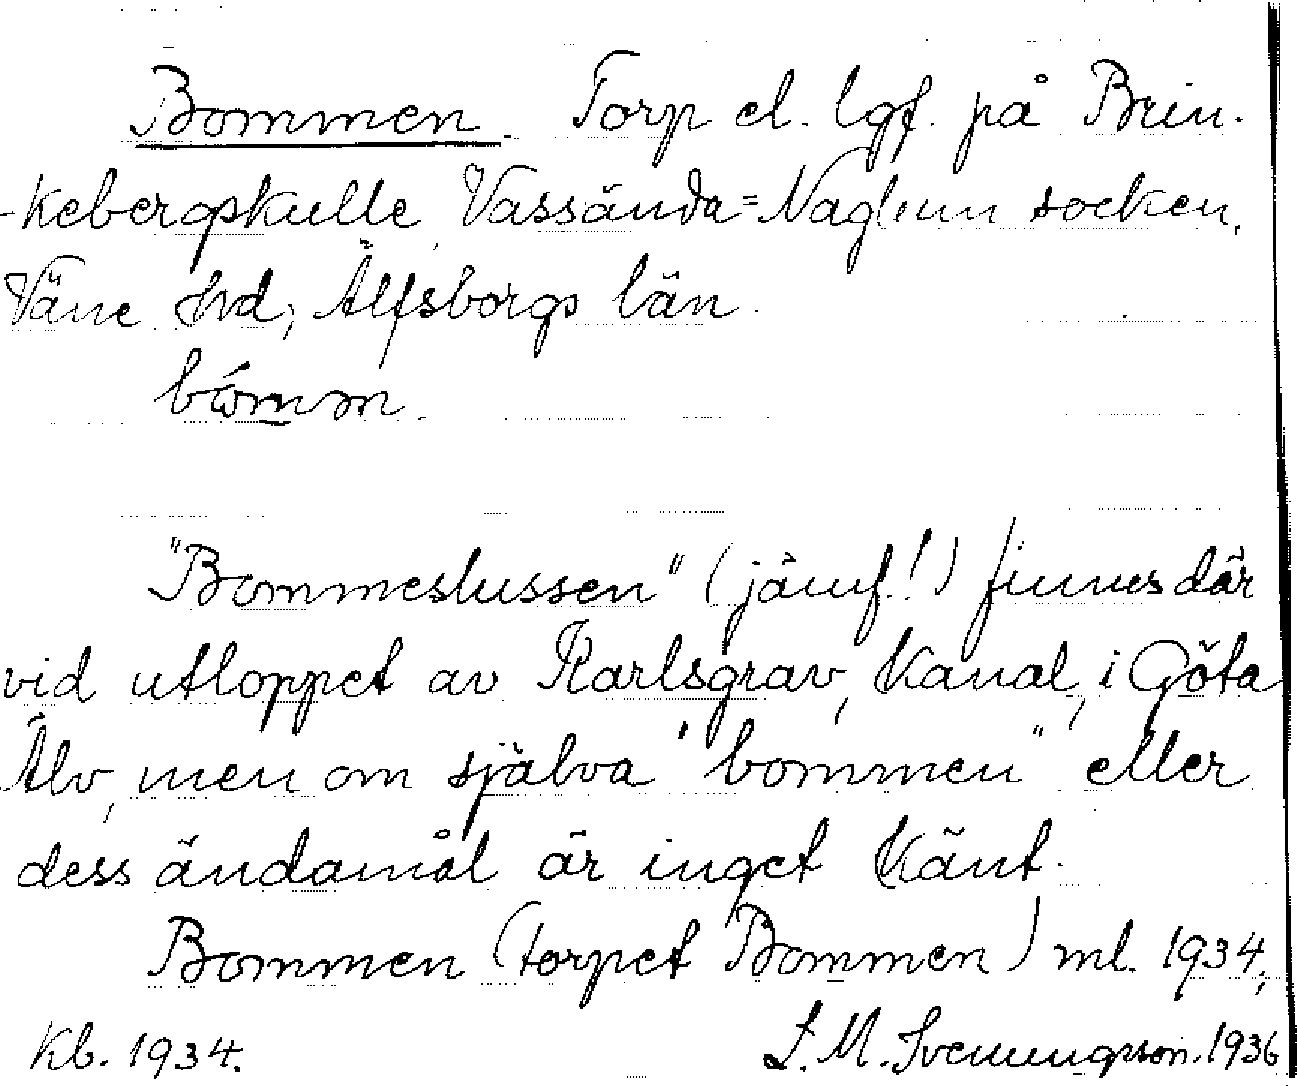 Bommen. Torp el. lgf. på Brin-
kebergskulle, Vassända-Naglum socken,
Väne hd, Älfsborgs län.
"Bommeslussen" (jämf.!) finnes där
vid utloppet av Karlsgrav, kanal, i Göta
Älv, men om själva "bommen" eller
dess ändamål är inget känt.
Bommen (torpet Bommen) ml. 1934,
Kb. 1934.
L. M. Svenungsson. 1936